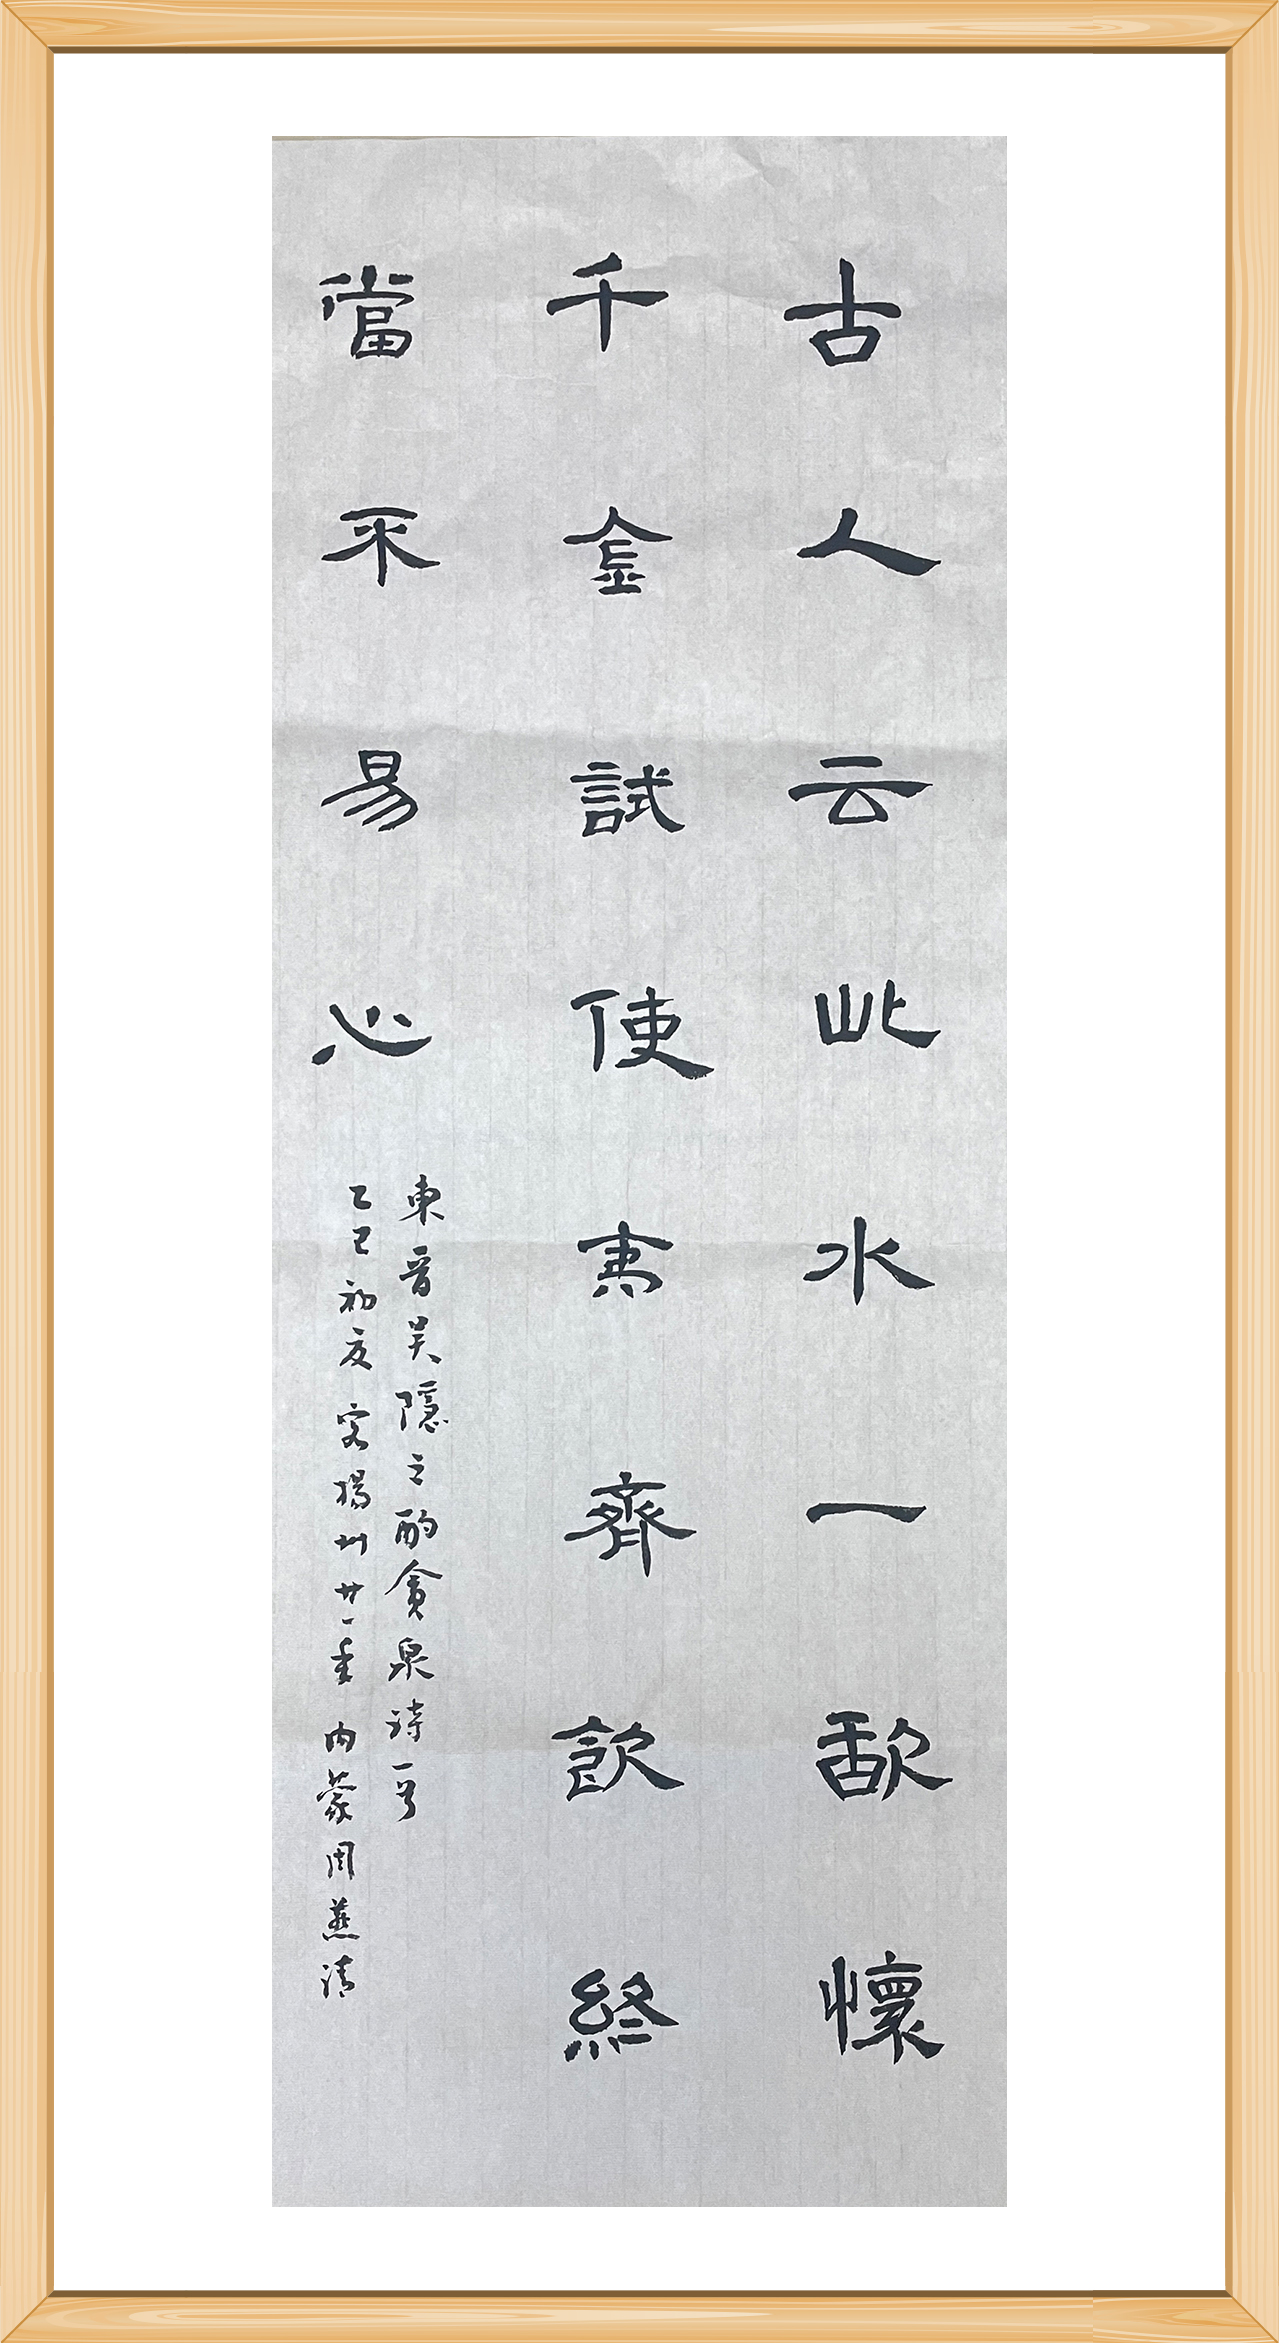 古人云此水一歃懷
千金試使夷齊飲終
當不易心
東晋吴隱之酌貪泉诗一首
乙巳初夏客揚州廿一年内蒙周燕清